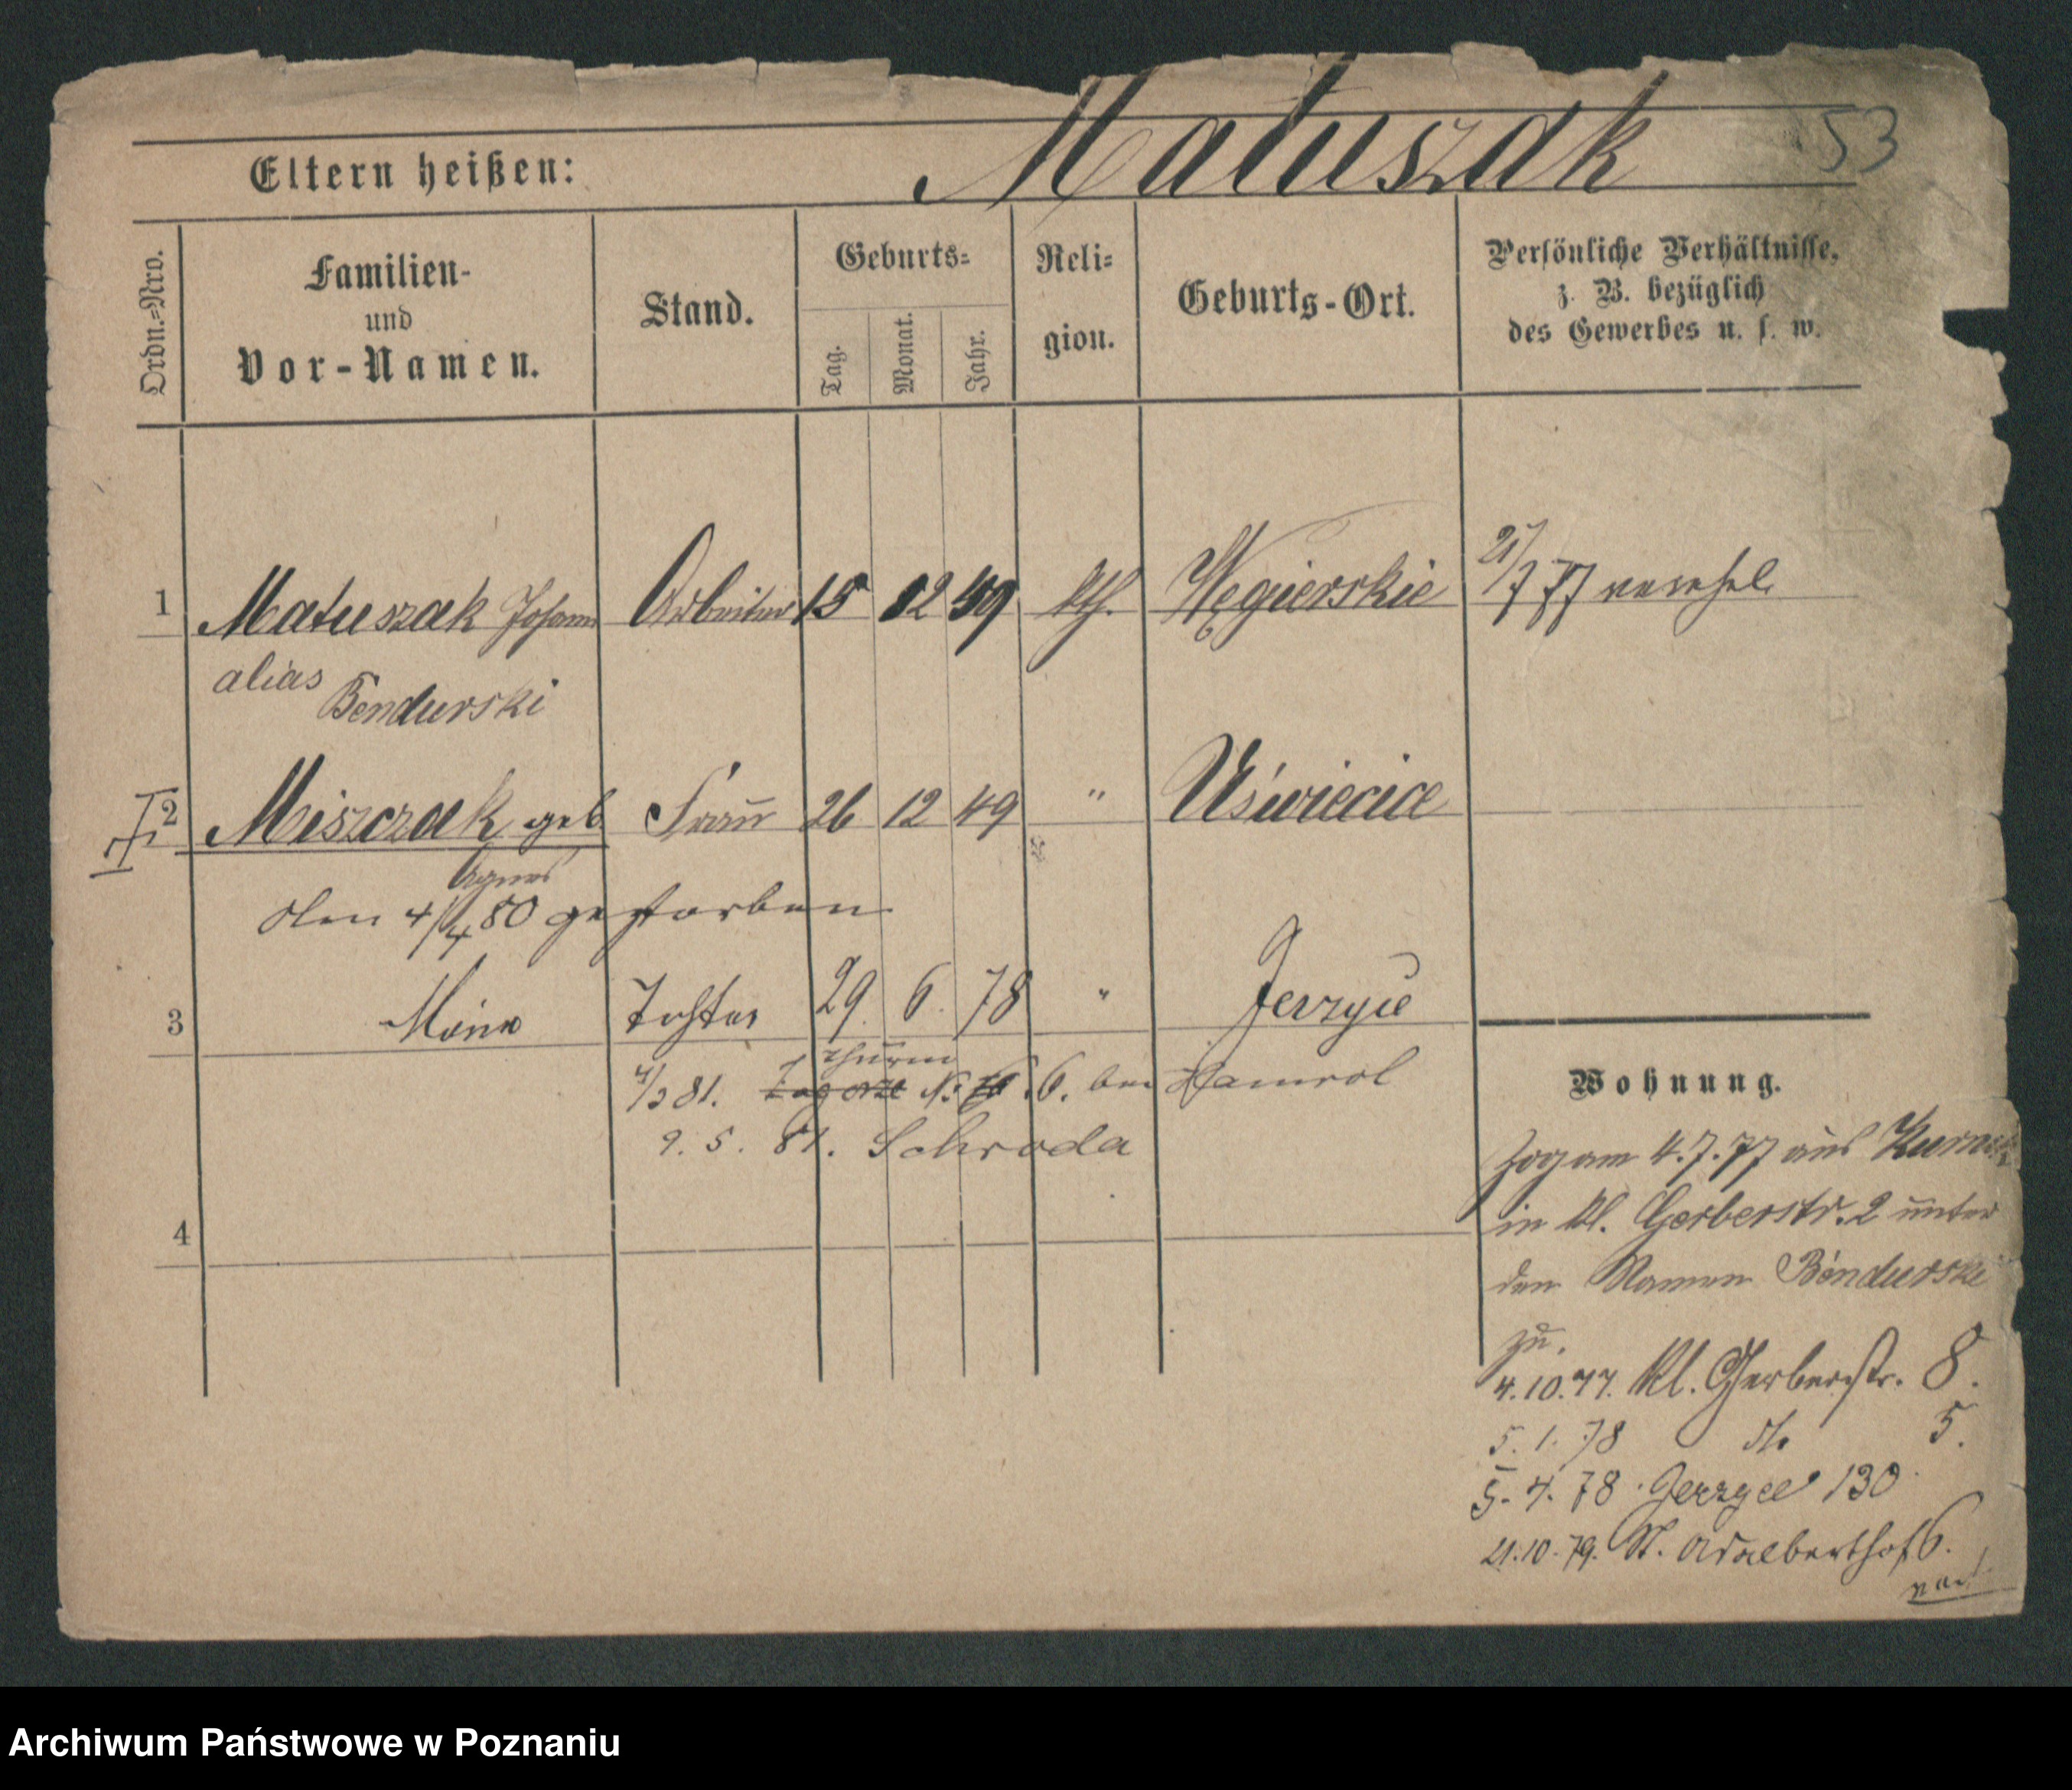 Matuszak 53
Eltern heißen:
Ordn.=Nro.
Familien-
und
Vor-Namen.
Stand.
Geburts=
Tag.
Monat.
Jahr.
Reli=
gion.
Geburts-Ort.
Persönliche Verhältnisse,
z. B. bezüglich
des Gewerbes u. s. w.
1 Matuszak Johann Arbeiter 15 12 49 kth. Węgierskie 21/7 77 verehel.
alias
Bendurski
2 Miszczak geb Frau 26 12 49 " Uświecice
Agnes
den 4/4 80 gestorben
3 Tochter 29. 6. 78 " Jerzyce
Thurm
4/3 81. Zagorze No 6. bei
9. 5. 81. Schroda
4
Wohnung.
Zog am 4.7.77 aus
in kl. Gerberstr. 2 unter
den Namen Bendurski
zu.
4.10.77. kl. Gerberstr. 8.
5. 1. 78 do 5.
5. 4. 78 Jerzyce 130
21.10.79. St. Adalberthof 6.
Archiwum Państwowe w Poznaniu